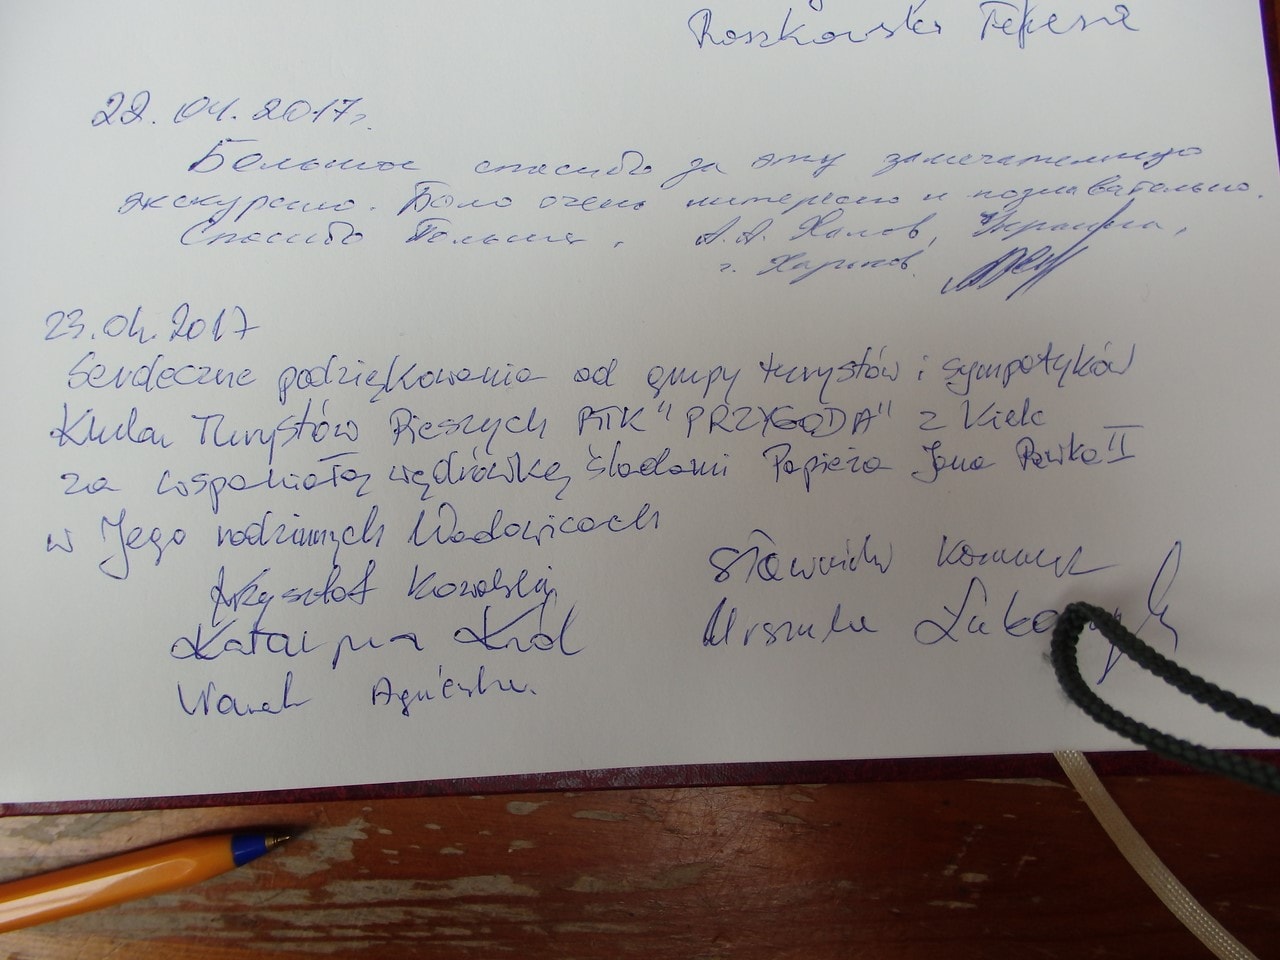 Roszkowska Teresa
22.04.2017г.
Большое спасибо за эту замечательную
экскурсию. Было очень интересно и познавательно.
Спасибо Польша, А.А. Халов, Украина,
г. Харьков.
23.04.2017
Serdeczne podziękowania od grupy turystów i sympatyków
Klubu Turystów Pieszych PTTK "PRZYGODA" z Kielc
za wspaniałą wędrówkę śladami Papieża Jana Pawła II
w Jego rodzinnych Wadowicach
Krzysztof Kowalski Sławomir
Katarzyna Król Urszula
Agnieszka